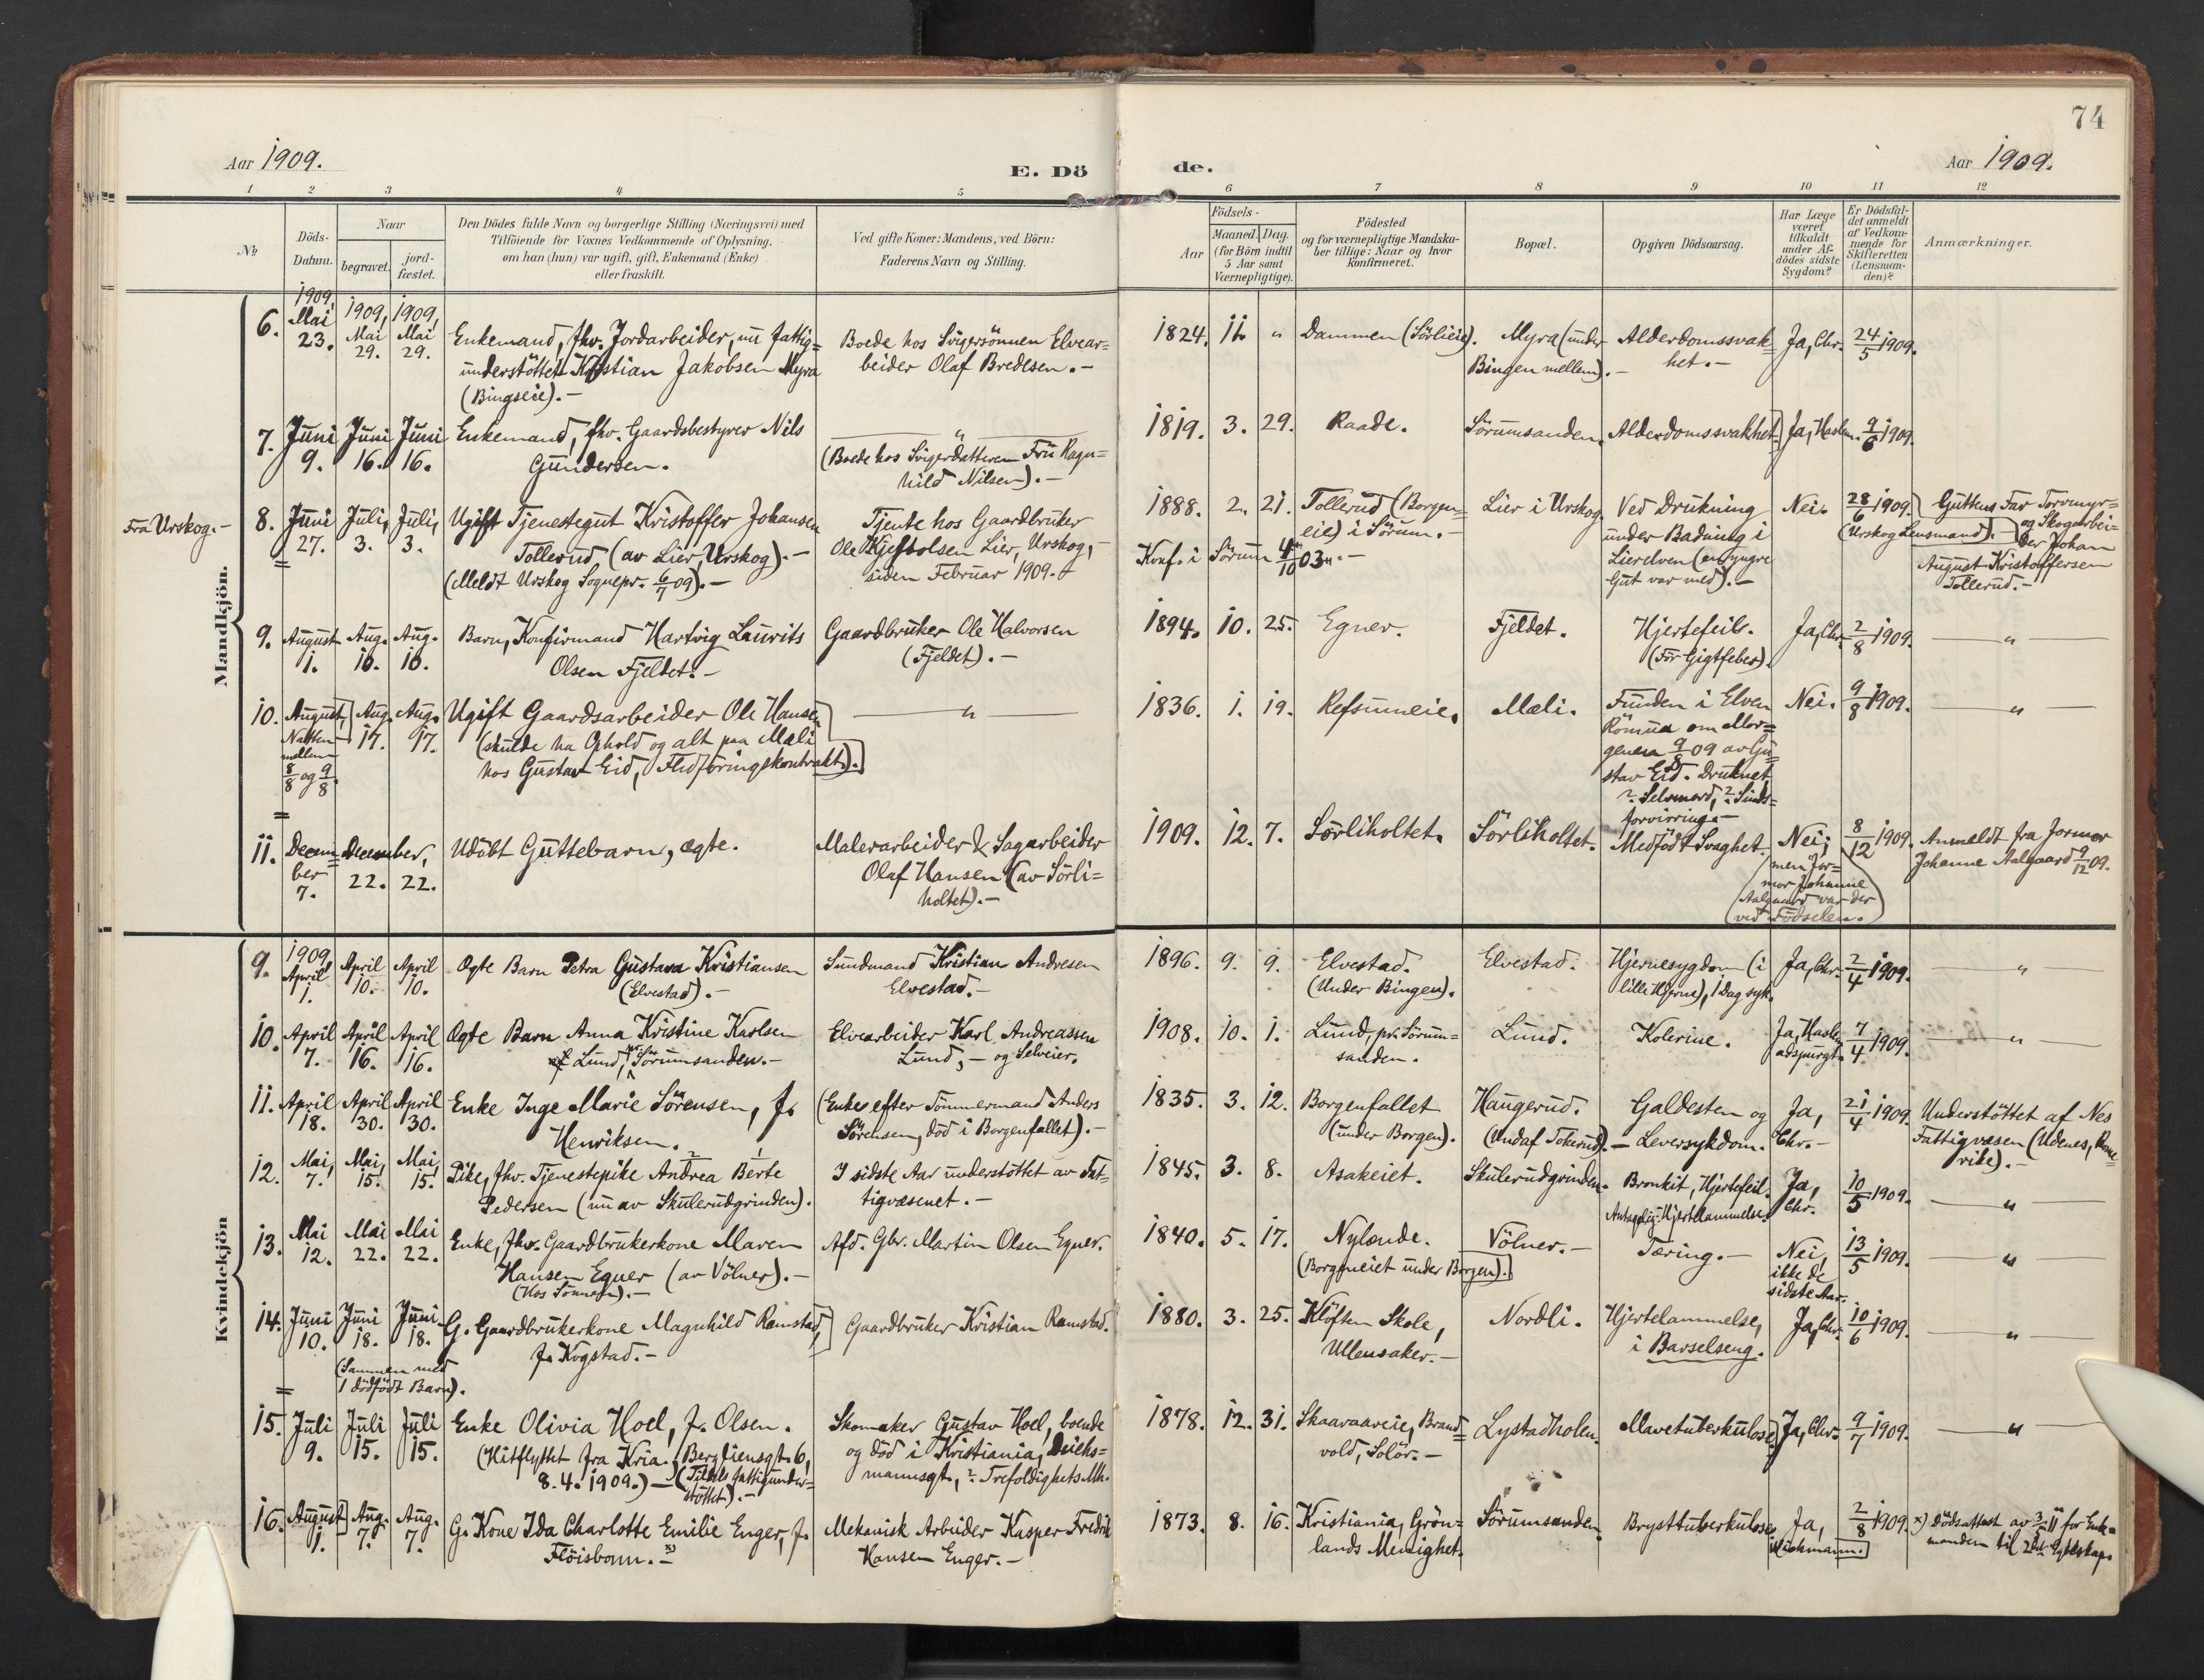 74
Aar 1909.
E. Dö de.
Aar 1909.
1 2 3 4 5 6 7 8 9 10 11 12
No
Döds-Datum.
Naar
begravet.
jord-fæstet.
Den Dödes fulde Navn og borgerlige Stilling (Næringsvei) med
Tilföiende for Voxnes Vedkommende af Oplysning,
om han (hun) var ugift, gift, Enkemand (Enke)
eller fraskilt.
Ved gifte Koner: Mandens, ved Börn:
Faderens Navn og Stilling.
Födsels-
Aar
Maaned. Dag.
(for Börn indtil
5 Aar samt
Værnepligtige).
Födested
og for værnepligtige Mandska-
ber tillige: Naar og hvor
konfirmeret.
Bopæl.
Opgiven Dödsaarsag.
Har Læge
været
tilkaldt
under Af-
dödes sidste
Sygdom?
Er Dödsfal-
det anmeldt
af Vedkom-
mende for
Skifteretten
(Lensman-
den)?
Anmærkninger.
Mandkjön.
6.
1909,
Mai
23.
1909,
Mai
29.
1909,
Mai
29.
Enkemand, fhv. Jordarbeider, nu fattig=
understöttet Kristian Jakobsen Myra
(Bingseie).-
Boede hos Svigersönnen Elvear=
beider Olaf Bredesen.-
1824. 11. "
Dammen (Sörlieie).
Myra (under
Bingen mellem).-
Alderdomssvak=
het.-
Ja, Chr.
24/5 1909.
7.
Juni
9.
Juni
16.
Juni
16.
Enkemand, fhv. Gaardsbestyrer Nils
Gundersen.
"
(Boede hos Svigerdatteren Fru Ragn=
hild Nilsen).-
1819. 3. 29.
Raade.
Sörumsanden.
Alderdomssvakhet.
Ja, Haslem.
9/6 1909.
Fra Urskog.-
8.
Juni
27.
Juli,
3.
Juli,
3.
Ugift Tjenestegut Kristoffer Johansen
Tollerud (av Lier, Urskog).-
(Meldt Urskog Sognepr. 6/7 09).-
Tjente hos Gaardbruker
Ole Kjeftolsen Lier, Urskog,-
siden Februar 1909.-
1888. 2. 21.
Tollerud (Borgen=
eie) i Sörum.-
Konf. i Sörum 4/10 03.-
Lier i Urskog.
Ved Drukning
under Badning i
Lierelven (en yngre
Gut var med).-
Nei.
28/6 1909.
(Urskog Lensmand).
Guttens Far Torvmyr=
og Skogarbei=
der Johan
August Kristoffersen
Tollerud.-
9.
August
1.
Aug.
10.
Aug.
10.
Barn, Konfirmand Hartvig Laurits
Olsen Fjeldet.-
Gaardbruker Ole Halvorsen
(Fjeldet).-
1894. 10. 25.
Egner.
Fjeldet.
Hjertefeil.
(För Gigtfeber).
Ja, Chr.
2/8 1909.
"
10.
August,
Natten
mellem
8/8 og 9/8.
Aug.
17.
Aug.
17.
Ugift Gaardsarbeider Ole Hansen
(skulde ha Ophold og alt paa Mæli
hos Gustav Eid, Flidföringskontrakt).
"
1836. 1. 19.
Refsumeie.
Mæli.
Funden i Elven
Römua om Mor=
genen 9/8 09 av Gu=
stav Eid. Druknet
? Selvmord, ? Sinds=
forvirring.-
Nei.
9/8 1909.
"
11.
Decem=
ber
7.
December,
22. 22.
Udöbt Guttebarn, ægte.
Malerarbeider & Sagarbeider
Olaf Hansen (av Sörli=
holtet).-
1909. 12. 7.
Sörliholtet.
Sörliholtet.
Medfödt Svaghet.
Nei;
men Jor=
mor Johanne
Aalgaard var der
ved Födselen.
8/12 1909.
Anmeldt fra Jormor
Johanne Aalgaard 9/12 09.
Kvindekjön
9.
1909,
April
1.
April
10.
April
10.
Ægte Barn Petra Gustava Kristiansen
(Elvestad).-
Sundmand Kristian Andresen
Elvestad.-
1896. 9. 9.
Elvestad.
(Under Bingen).
Elvestad.
Hjernesygdom (i
lille Hjerne), 1 Dag syk.
Ja, Chr.
2/4 1909.
"
10.
April
7.
April
16.
April
16.
Ægte Barn Anna Kristine Karlsen
af Lund, pr. Sörumsanden.-
Elvearbeider Karl Andreassen
Lund,- og Selveier.
1908. 10. 1.
Lund, pr. Sörum=
sanden.
Lund.
Kolerine.
Ja, Haslem
adspurgt.
7/4 1909.
"
11.
April
18.
April
30.
April
30.
Enke Inge Marie Sörensen, f.
Henriksen.
(Enke efter Tömmermand Anders
Sörensen, död i Borgenfallet).-
1835. 3. 12.
Borgenfallet
(under Borgen).
Haugerud.
(Undaf Tokerud).-
Galdesten og
Leversykdom.
Ja,
Chr.-
21/4 1909.
Understöttet af Nes
Fattigvæsen (Udenes, Rome=
rike).-
12.
Mai,
7.
Mai,
15.
Mai,
15.
Pike, fhv. Tjenestepike Andrea Berte
Pedersen (nu av Skulerudgrinden).
I sidste Aar understöttet av Fat=
tigvæsenet.-
1845. 3. 8.
Asakeiet.
Skulerudgrinden.
Bronkit, Hjertefeil.
Antagelig: Hjertelammelse.
Ja,
Chr.
10/5 1909.
"
13.
Mai
12.
Mai
22.
Mai
22.
Enke, fhv. Gaardbrukerkone Maren
Hansen Egner (av Völner).-
(Hos Sönnen).-
Afd. Gbr. Martin Olsen Egner.
1840. 5. 17.
Nylende.
(Borgeneiet under Borgen).
Völner.-
Tæring.-
Nei,
ikke de
sidste Aar.
13/5 1909.
"
14.
Juni
10.
Juni
18.
Juni
18.
(Sammen med
1 dödfödt Barn).
G. Gaardbrukerkone Magnhild Ramstad,
f. Kogstad.-
Gaardbruker Kristian Ramstad.
1880. 3. 25.
Klöften Skole,
Ullensaker.-
Nordli.
Hjertelammelse,
i Barselseng.
Ja, Chr.
10/6 1909.
"
15.
Juli
9.
Juli
15.
Juli
15.
Enke Olivia Hoel, f. Olsen.
(Hitflyttet fra Kria. Bergliensgt. 6,
8.4.1909.)-(Tildels fattigunder=
stöttet).-
Skomaker Gustav Hoel, boende
og död i Kristiania, Deichs=
mannsgt., ? Trefoldighets Mh.
1878. 12. 31.
Skaaraaveie, Brand=
vold, Solör.-
Lystadholen.
Mavetuberkulose.
Ja, Chr.
9/7 1909.
"
16.
August
1.
Aug.
7.
Aug.
7.
G. Kone Ida Charlotte Emilie Enger, f.
Flöisbonn.- x)
Mekanisk Arbeider Kasper Fredrik
Hansen Enger.-
1873. 8. 16.
Kristiania, Grön=
lands Menighet.
Sörumsanden.
Brysttuberkulose.
Ja,
2/8 1909.
x) Dödsattest av 3/1 11 for Enke=
manden til 2det Egteskap.